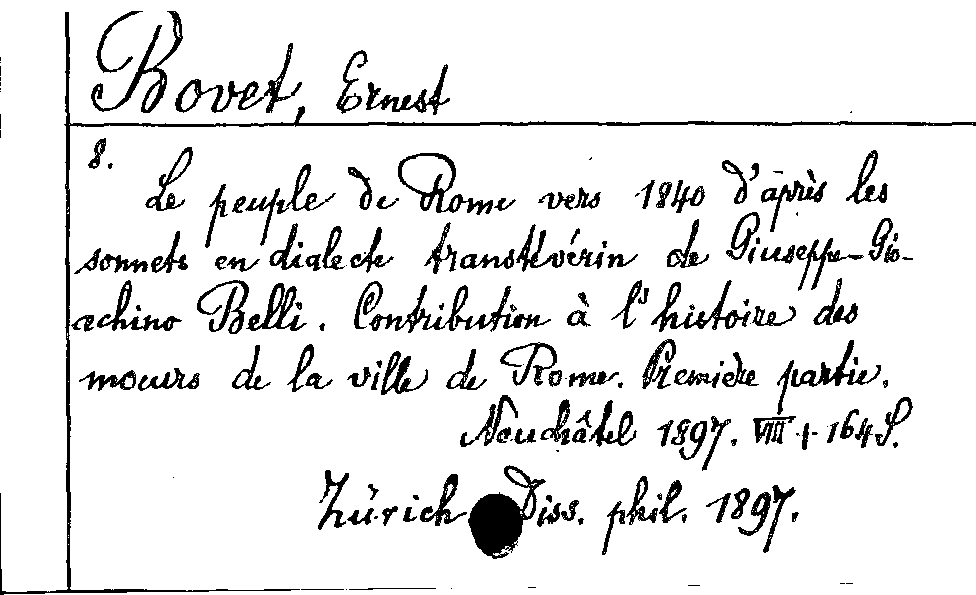 Bovet, Ernest
8.
Le peuple de Rome vers 1840 d'après les
sonnets en dialecte transtévérin de Giuseppe-Gio-
achino Belli. Contribution à l'histoire des
moeurs de la ville de Rome. Première partie.
Neuchâtel 1897. VIII + 164 S.
Zürich Diss. phil. 1897.